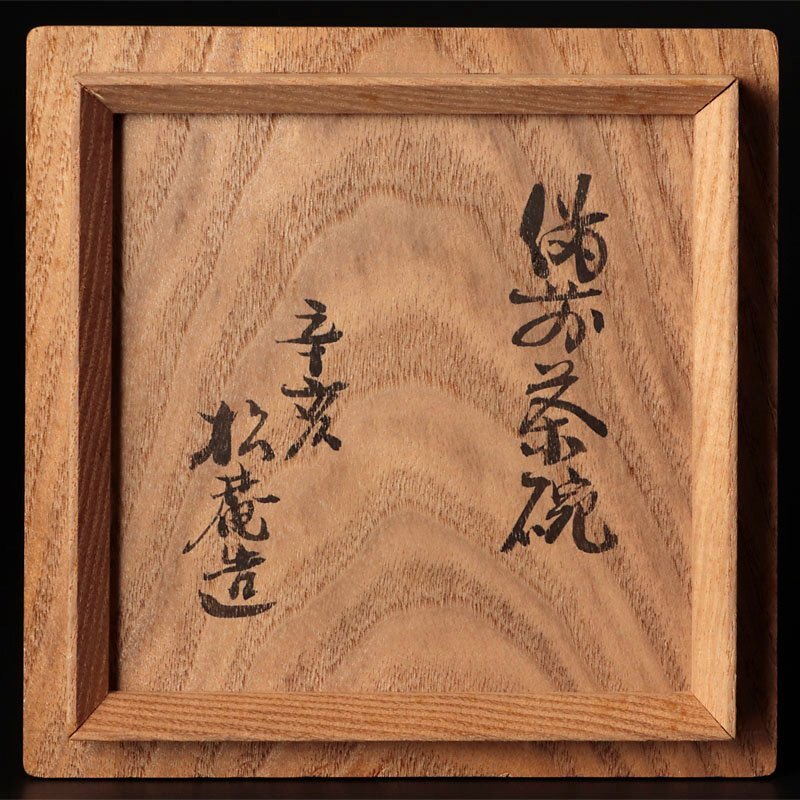 備前茶碗
辛亥
松菴造